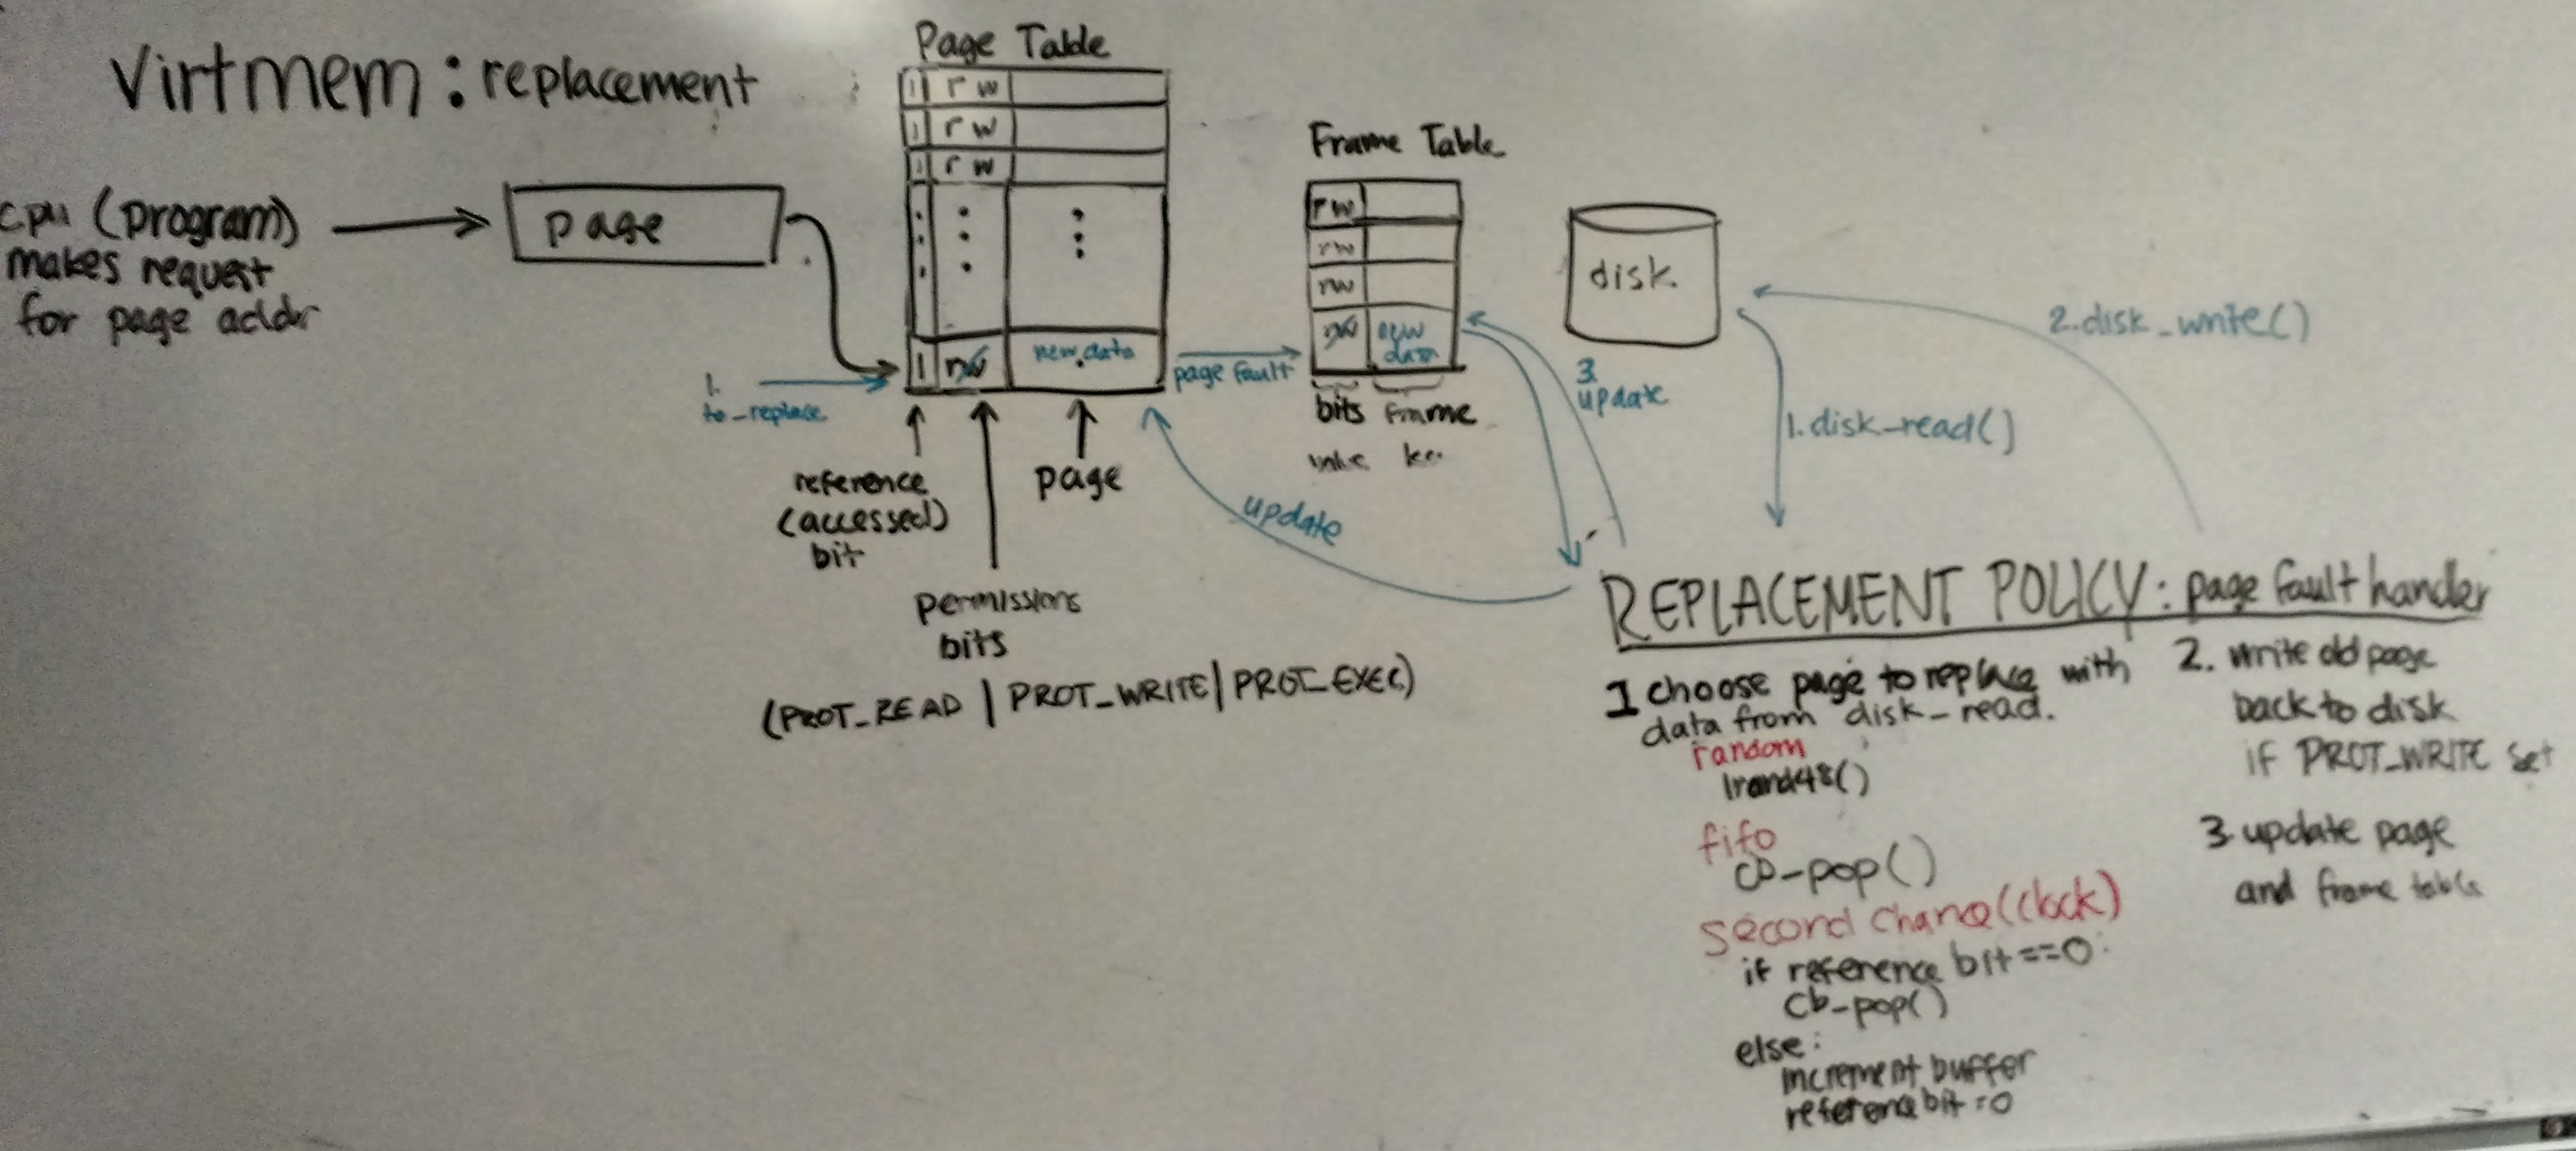 Virtmem: replacement
cpu (program)
makes request
for page addr
page
Page Table
1 r w
1 r w
1 r w
1 rw new data
1.
to_replace
reference
(accessed)
bit
permissions
bits
(PROT_READ | PROT_WRITE | PROT_EXEC)
page
page fault
update
Frame Table
rw
rw
rw
rw new
data
bits frame
3.
update
disk
1.disk_read()
2.disk_write()
REPLACEMENT POLICY: page fault hander
1 choose page to replace with
data from disk_read.
random
lrand48()
fifo
cb_pop()
second chance (clock)
if reference bit==0:
cb_pop()
else:
increment buffer
reference bit=0
2. write old page
back to disk
if PROT_WRITE set
3. update page
and frame table